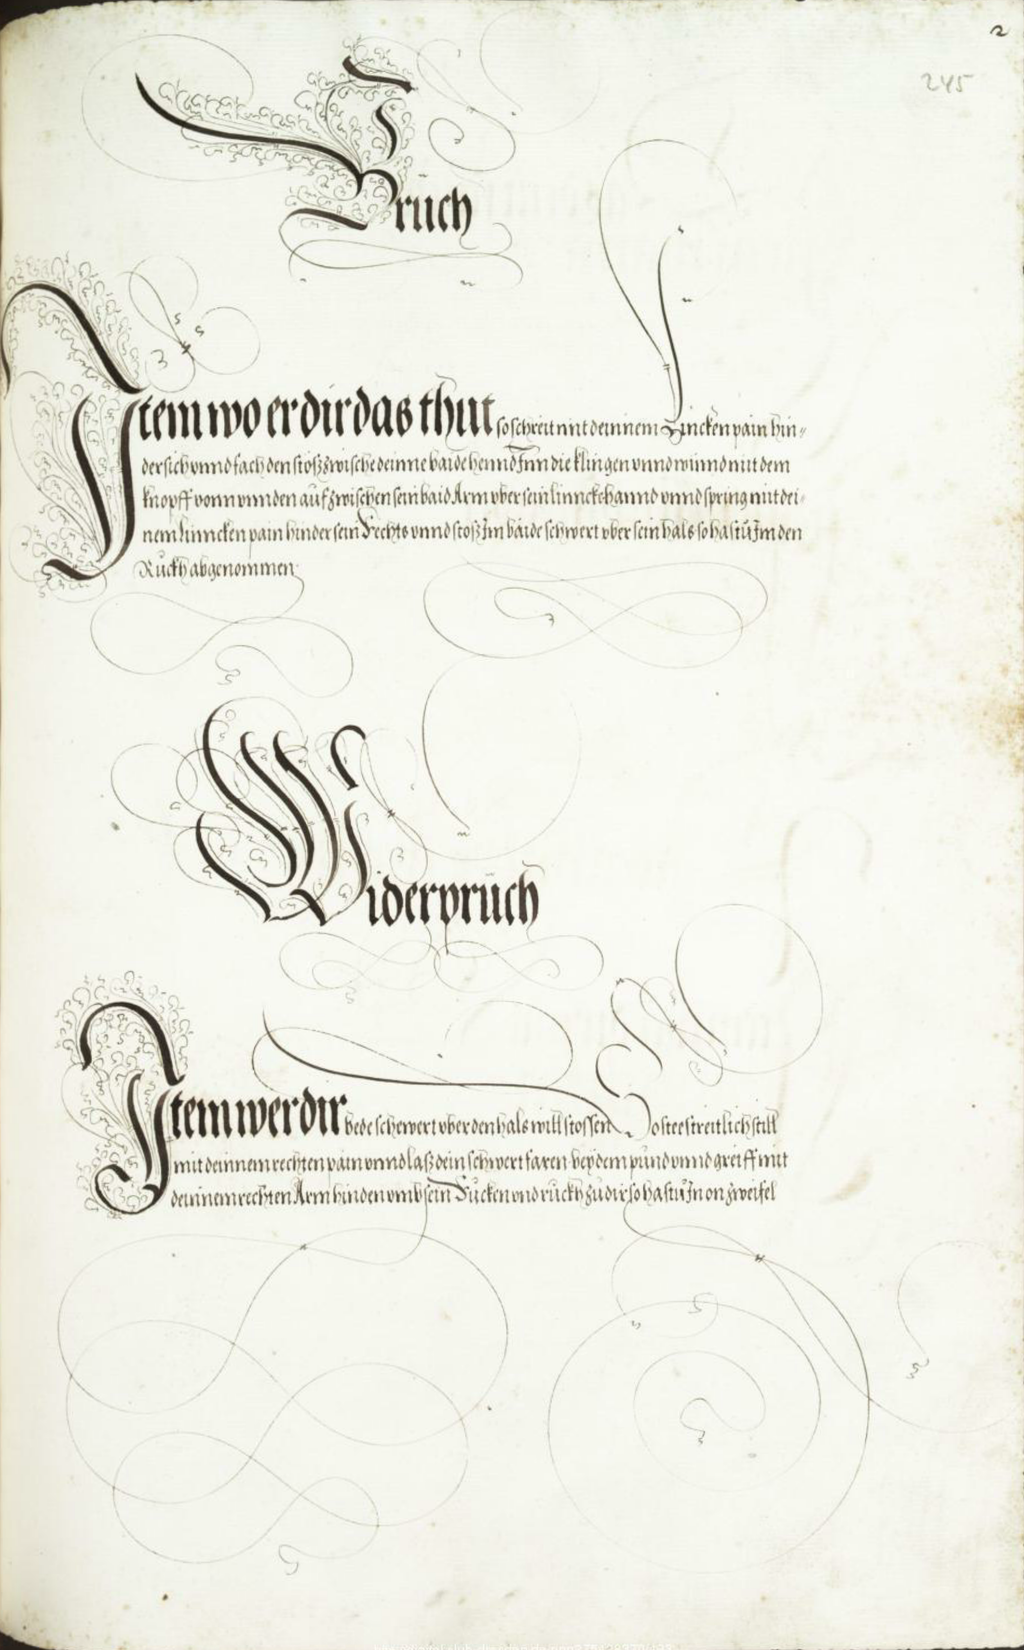 2
245
Brüch
Item wo er dir das thut so schreit mit deinnem Lincken pain hin-
dersich vnnd fach den stoß zwische deinne baide hennd Inn die klingen vnnd winnd mit dem
knopff vonn vnnden auf zwischen sein baid Arm vber sein linncke hannd vnnd spring mit dei-
nem linncken pain hinder sein Rechts vnnd stoß Im baide schwert vber sein hals so hastü Im den
Rückh abgenommen
Widerprüch
Item wer dir bede schwert vber den hals will stossen So stee streitlich still
mit deinnem rechten pain vnnd laß dein schwert faren bey dem pünd vnnd greiff mit
deinnem rechten Arm hinden vmb sein Rücken vnd rückh zu dir so hastü In on zweifel